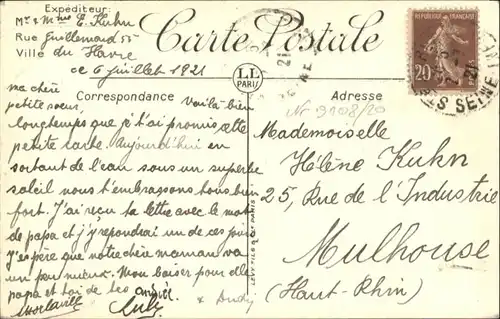 Expéditeur:
Mr & Mme E. Kuhn
Rue Guillemard 55
Ville du Havre
Carte Postale
ce 6 juillet 1921
LL
PARIS
Correspondance
Adresse
RÉPUBLIQUE FRANÇAISE
20
SEINE
21
Nr 9108/20
ma chère
petite soeur, Voilà bien
longtemps que je t'ai promis cette
petite carte. Aujourd'hui en
sortant de l'eau sous un superbe
soleil nous t'embrassons tous bien
fort. J'ai reçu ta lettre avec le mot
de papa et j'y répondrai un de ces jours
J'espère que notre chère maman va
un peu mieux. Mon baiser pour elle
papa et toi de tes
Mademoiselle
Hélène Kuhn
25, Rue de l'Industrie
Mulhouse
(Haut-Rhin)
LEVY FILS & Cie PARIS